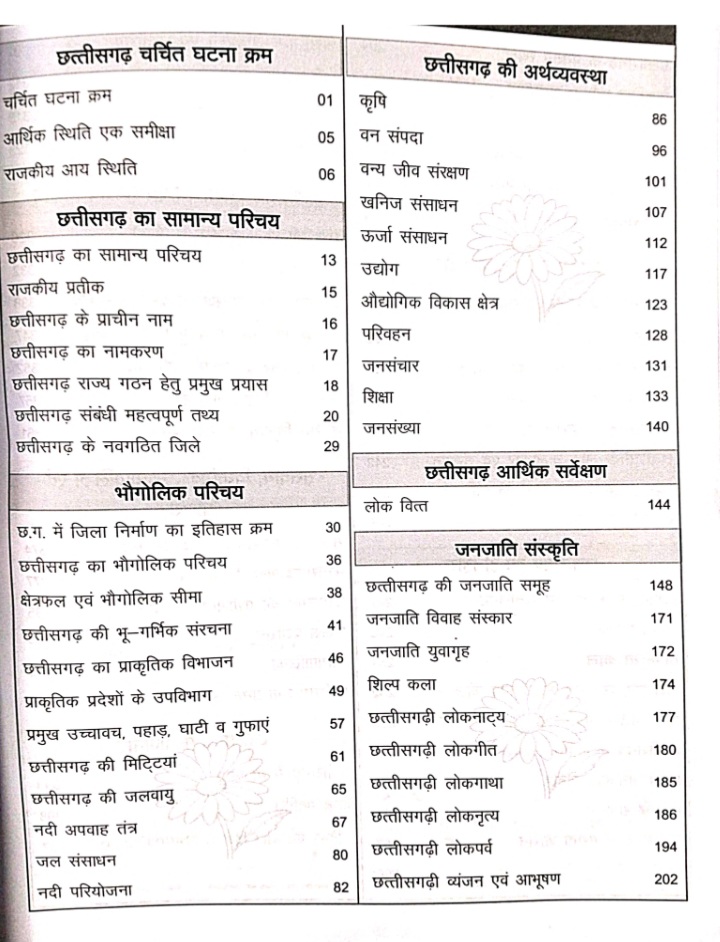 छत्तीसगढ़ चर्चित घटना क्रम
चर्चित घटना क्रम 01
आर्थिक स्थिति एक समीक्षा 05
राजकीय आय स्थिति 06
छत्तीसगढ़ का सामान्य परिचय
छत्तीसगढ़ का सामान्य परिचय 13
राजकीय प्रतीक 15
छत्तीसगढ़ के प्राचीन नाम 16
छत्तीसगढ़ का नामकरण 17
छत्तीसगढ़ राज्य गठन हेतु प्रमुख प्रयास 18
छत्तीसगढ़ संबंधी महत्वपूर्ण तथ्य 20
छत्तीसगढ़ के नवगठित जिले 29
भौगोलिक परिचय
छ.ग. में जिला निर्माण का इतिहास क्रम 30
छत्तीसगढ़ का भौगोलिक परिचय 36
क्षेत्रफल एवं भौगोलिक सीमा 38
छत्तीसगढ़ की भू–गर्भिक संरचना 41
छत्तीसगढ़ का प्राकृतिक विभाजन 46
प्राकृतिक प्रदेशों के उपविभाग 49
प्रमुख उच्चावच, पहाड़, घाटी व गुफाएं 57
छत्तीसगढ़ की मिट्टियां 61
छत्तीसगढ़ की जलवायु 65
नदी अपवाह तंत्र 67
जल संसाधन 80
नदी परियोजना 82
छत्तीसगढ़ की अर्थव्यवस्था
कृषि 86
वन संपदा 96
वन्य जीव संरक्षण 101
खनिज संसाधन 107
ऊर्जा संसाधन 112
उद्योग 117
औद्योगिक विकास क्षेत्र 123
परिवहन 128
जनसंचार 131
शिक्षा 133
जनसंख्या 140
छत्तीसगढ़ आर्थिक सर्वेक्षण
लोक वित्त 144
जनजाति संस्कृति
छत्तीसगढ़ की जनजाति समूह 148
जनजाति विवाह संस्कार 171
जनजाति युवागृह 172
शिल्प कला 174
छत्तीसगढ़ी लोकनाट्य 177
छत्तीसगढ़ी लोकगीत 180
छत्तीसगढ़ी लोकगाथा 185
छत्तीसगढ़ी लोकनृत्य 186
छत्तीसगढ़ी लोकपर्व 194
छत्तीसगढ़ी व्यंजन एवं आभूषण 202